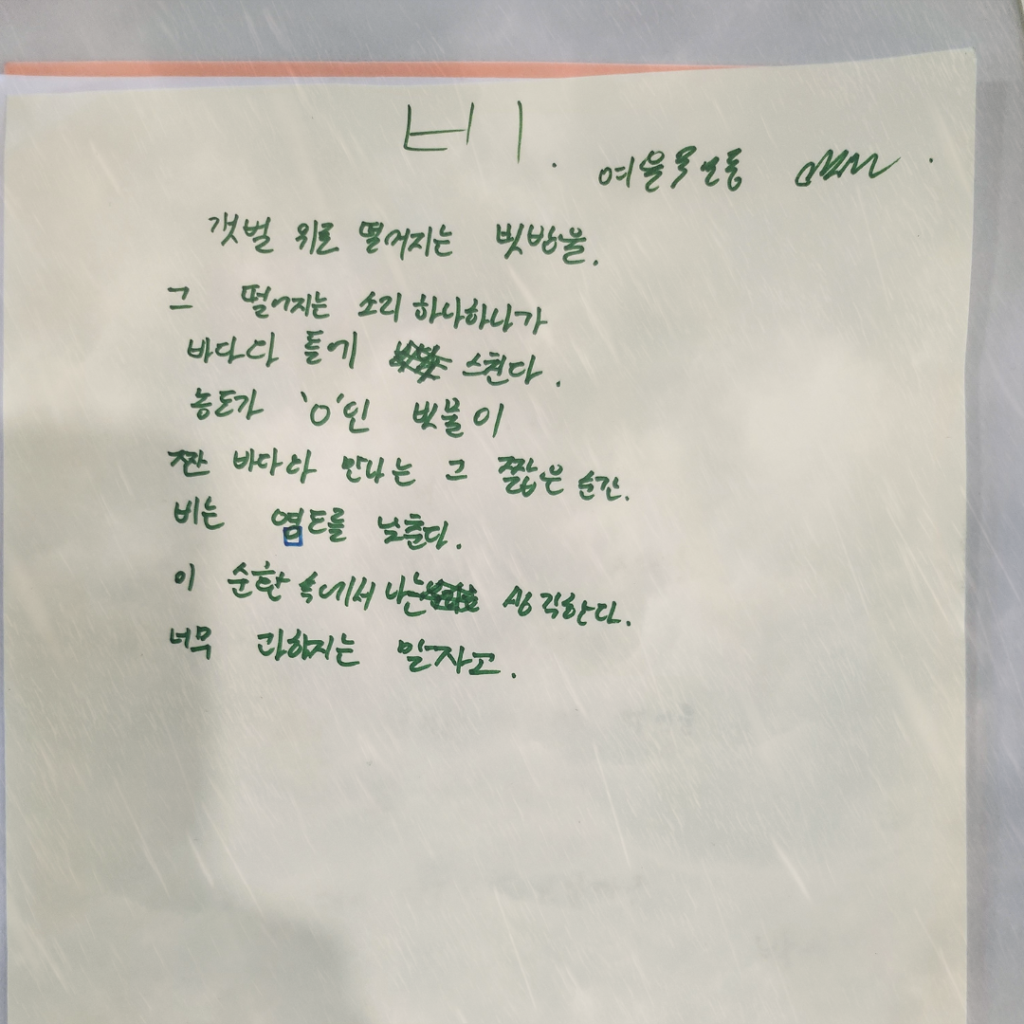 비.
여울목 
갯벌 위로 떨어지는 빗방울.
그 떨어지는 소리 하나하나가
바다다 틈에 스천다.
농도가 '0'인 빗물이
짠 바다다 만나는 그 짧은 순간.
비는 염도를 낮춘다.
이 순환 속에서 나는 생각한다.
너무 과하지는 말자고.